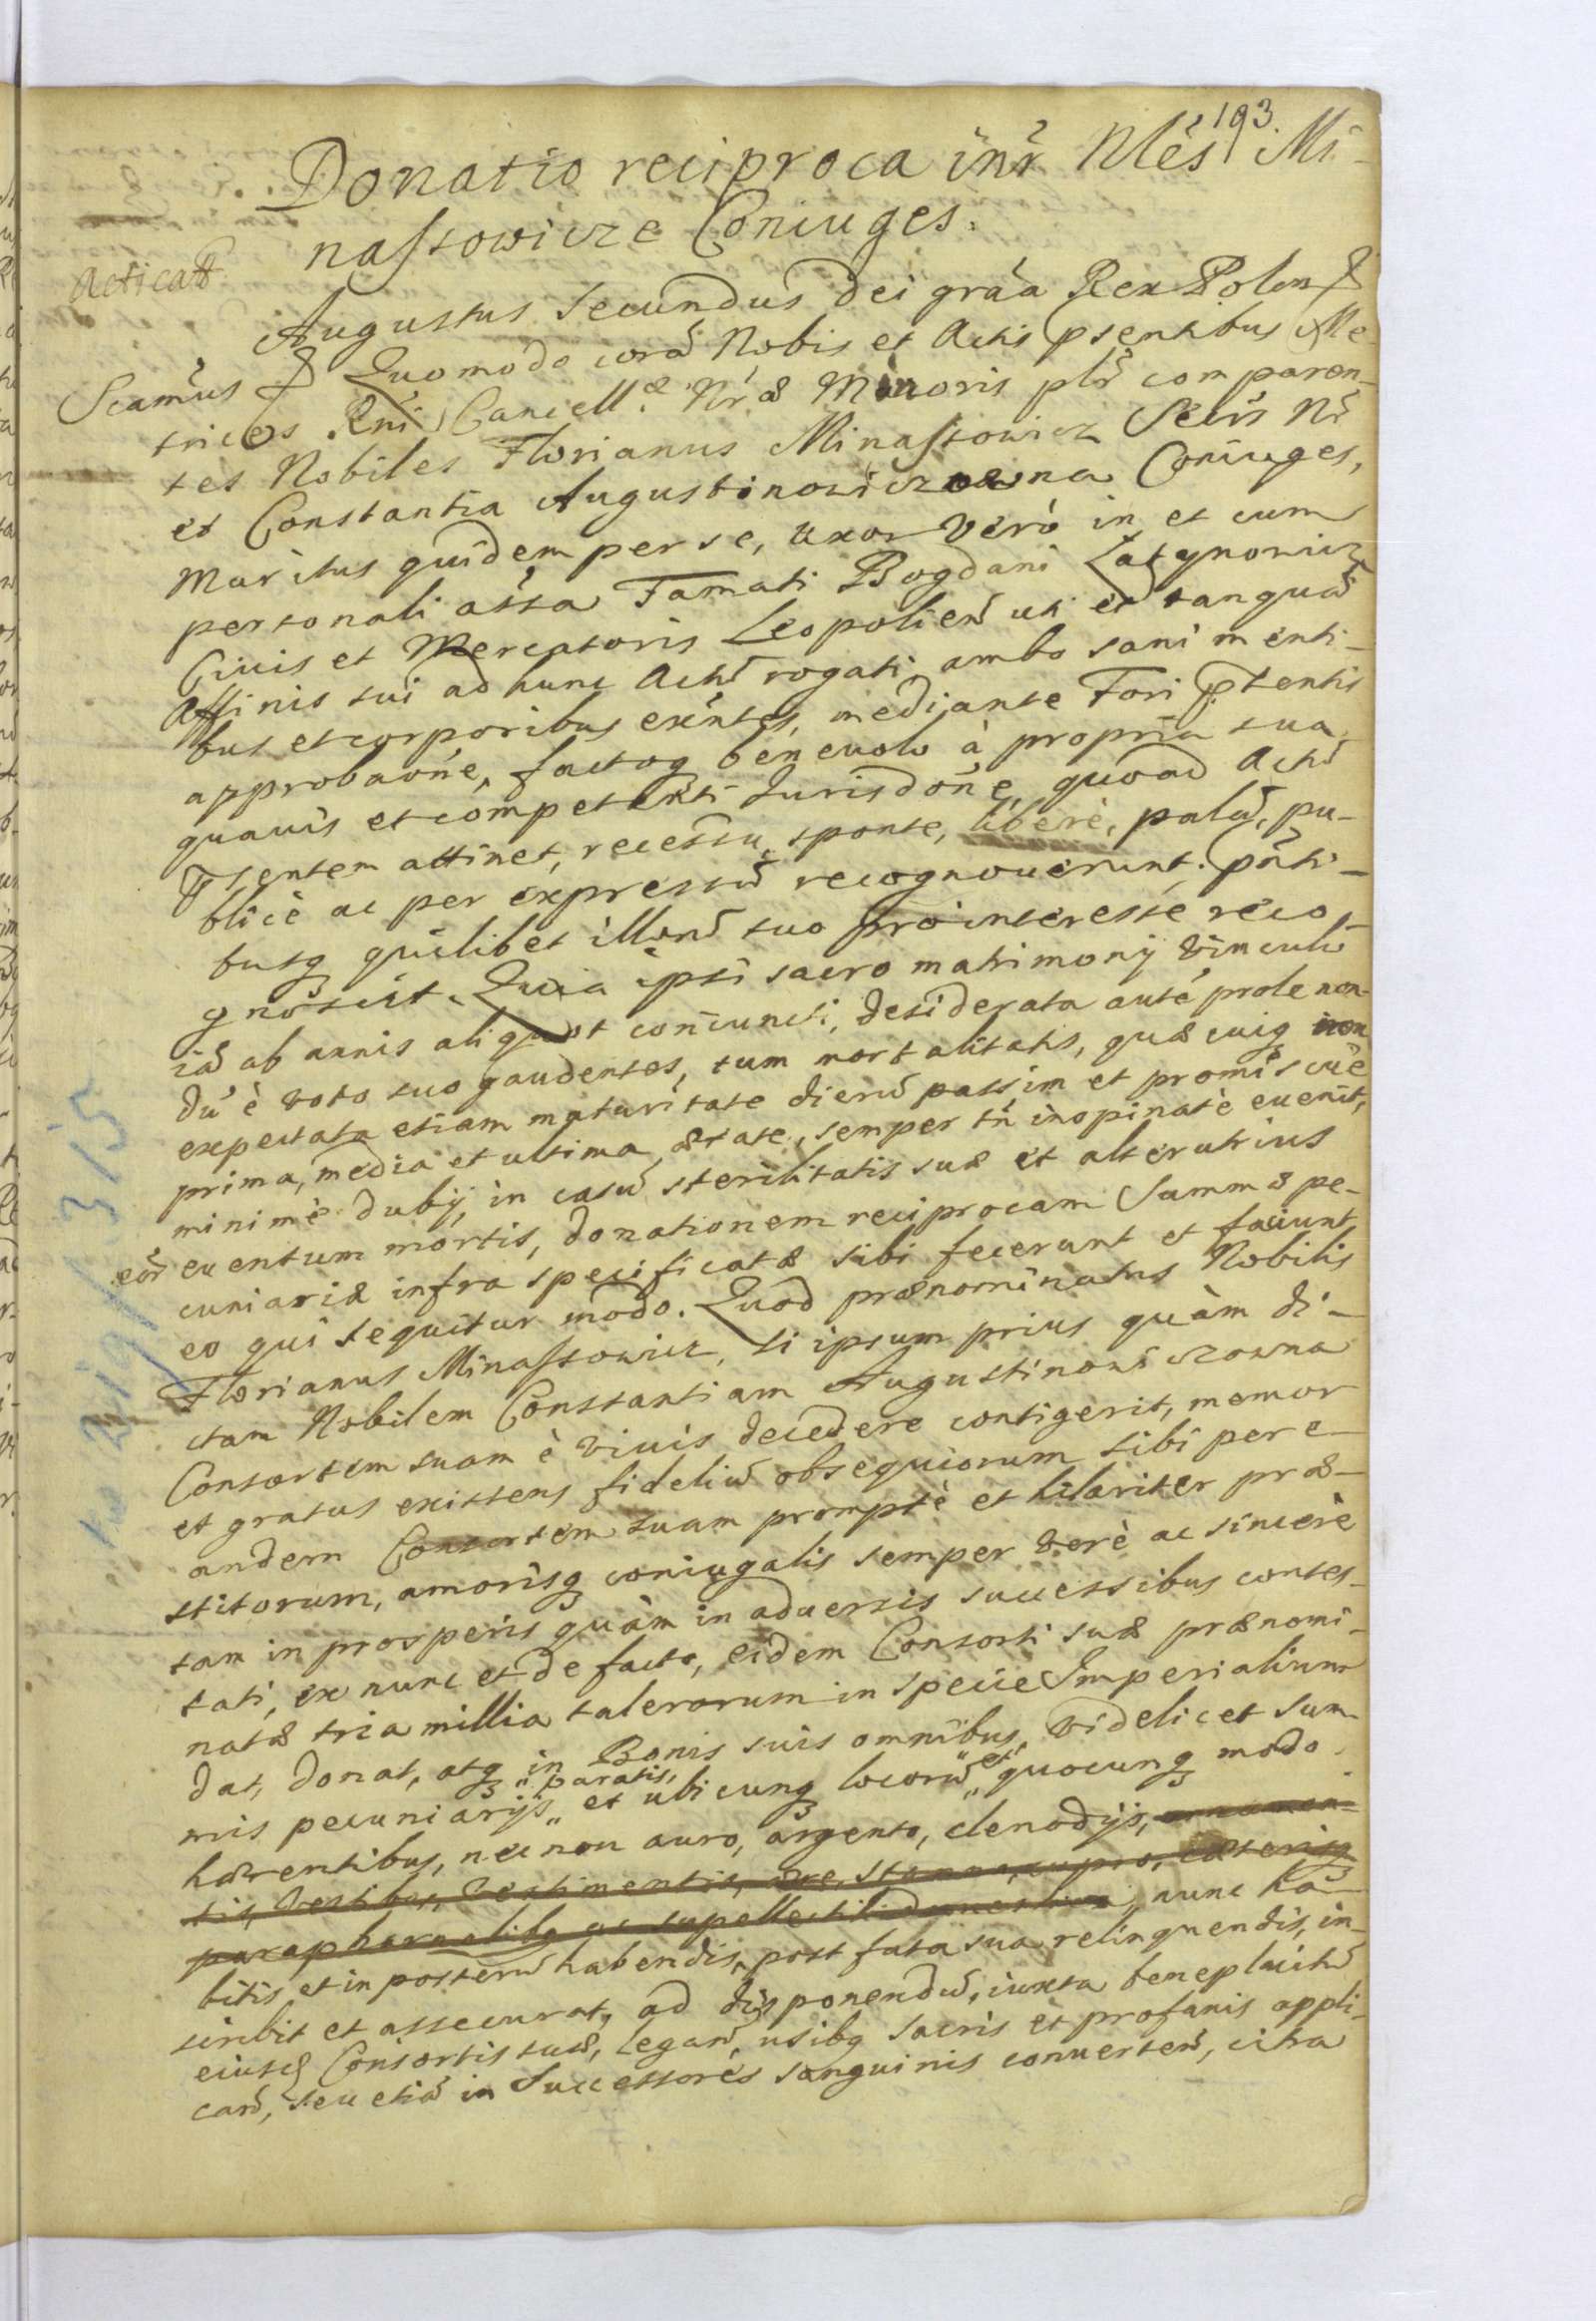 193.
Donatio reciproca intr Nles Mi-
nassowicze Coniuges.
Acticat
Augustus Secundus Dei graa Rex Polon
Scamus Quomodo corā Nobis et Actis psentibus Me-
trices Rni Cancell.æ Nræ Minoris plr comparen-
tes Nobiles Florianus Minassowicz Secrs Nr
et Constantia Augustinowiczowna Coniuges,
Maritus quidem per se, uxor verò in et cum
personali assa Famati Bogdani Latynowicz
Ciuis et Mercatoris Leopolien uti et tanquā
Affinis sui ad hunc Actū rogati, ambo sani menti-
bus et corporibus exntes, mediante Fori ptentis
approbaone, factoq beneuolo à propria sua,
quauis et competenti Jurisdone, quoad Actū
psentem attinet, recessu, sponte, liberè, palā, pu-
blicè ac per expressū recognouerunt. pnti-
busq quilibet illorū suo pro interesse reco-
gnoscit. Quia ipsi sacro matrimonij vinculo
iā ab annis aliquot coniuncti, desiderata autē prole non-
dū è voto suo gaudentes, tum mortalitatis, quæ cuiq non
expectata etiam maturitate dierū passim et promiscuè
prima, media et ultima ætate, semper tn inopinatè euenit,
minimè dubij, in casū sterilitatis suæ et alterutrius
eor euentum mortis, donationem reciprocam Summæ pe-
cuniariæ infra specificatæ sibi fecerunt et faciunt
eo qui sequitur modo. Quod prænominatus Nobilis
Florianus Minassowicz, si ipsum prius quàm di-
ctam Nobilem Constantiam Augustinowiczowna
Consortem suam è viuis decedere contigerit, memor
et gratus existens fideliū obsequiorum sibi per e-
andem Consortem suam promptè et hilariter præ-
stitorum, amorisq coniugalis semper verè ac sincerè
tam in prosperis quàm in aduersis successibus contes-
tati, ex nunc et de facto, eidem Consorti suæ prænomi-
natæ tria millia talerorum in specie Imperialium
dat, donat, atq in Bonis suis omnibus, videlicet sum-
mis pecuniarijs paratis, et ubicunq locorū et quocunq modo
hærentibus, nec non auro, argento, clenodijs, ornamen-
tis, vestibus, vestimentis, ære, stanno, cupro, cæterisq
paraphernalibq ac supellectili domestica, nunc ha-
bitis et in posterū habendis, post fata sua relinquendis, in-
scribit et assecurat, ad disponendū, iuxta beneplacitū
eiusd Consortis suæ, legan, usibq sacris et profanis appli-
can, seu etiā in Successores sanguinis conuerten, citra